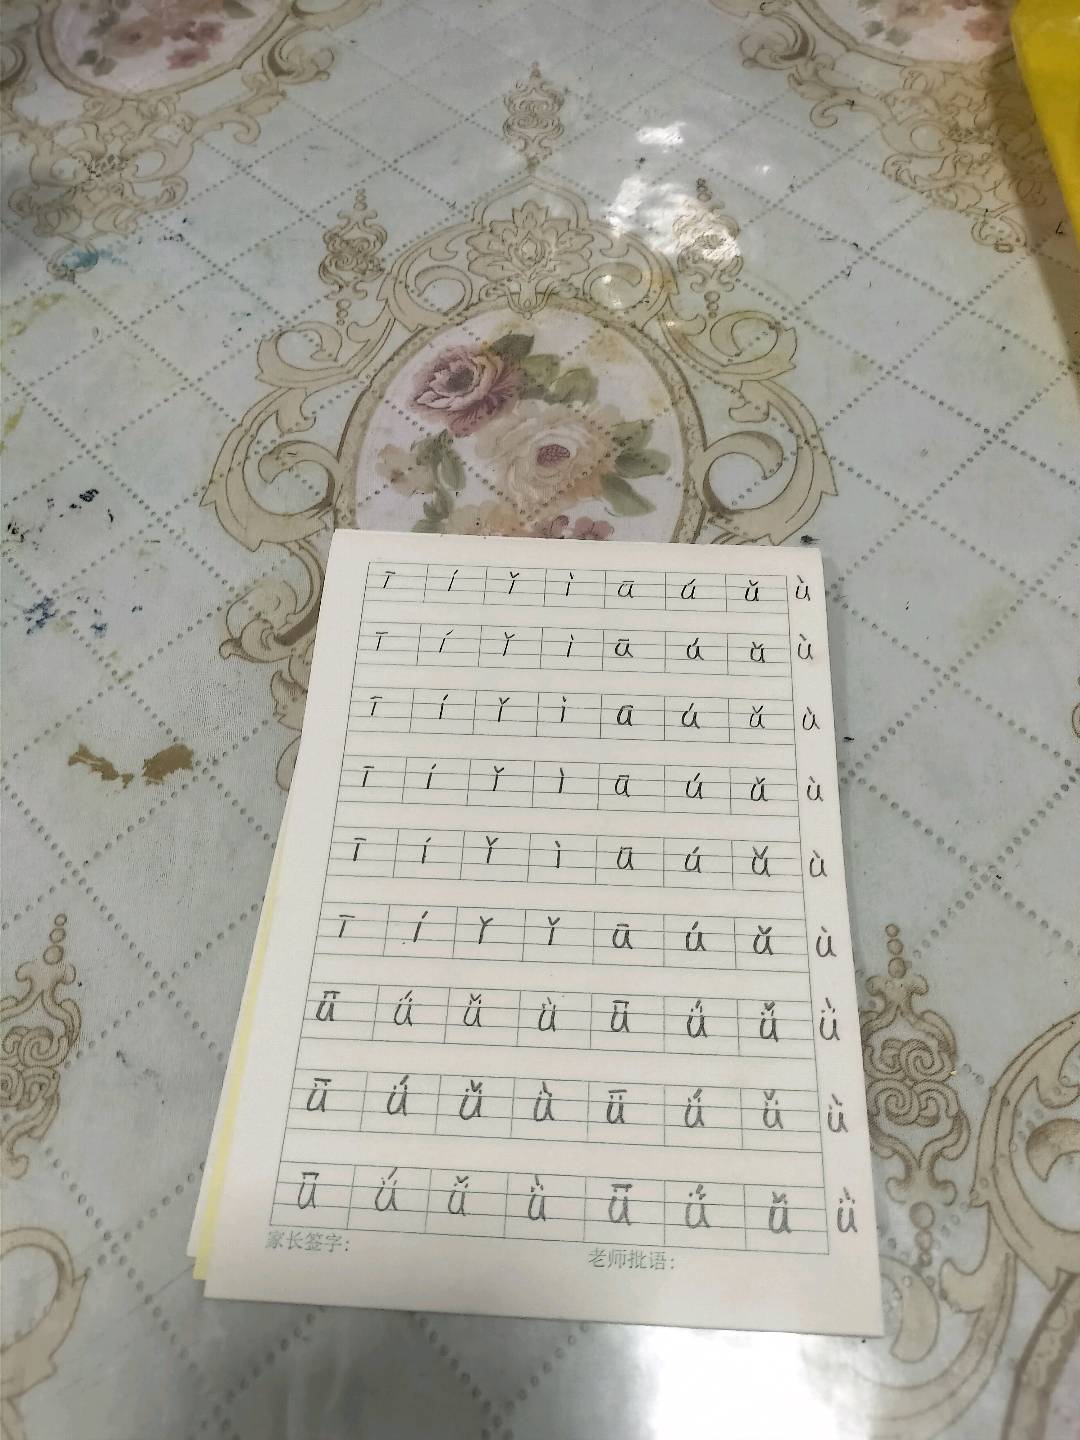 ī í ǐ ì ū ú ǔ ù
ī í ǐ ì ū ú ǔ ù
ī í ǐ ì ū ú ǔ ù
ī í ǐ ì ū ú ǔ ù
ī í ǐ ì ū ú ǔ ù
ī í ǐ ǐ ū ú ǔ ù
ǖ ǘ ǚ ǜ ǖ ǘ ǚ ǜ
ǖ ǘ ǚ ǜ ǖ ǘ ǚ ǜ
ǖ ǘ ǚ ǜ ǖ ǘ ǚ ǜ
家长签字: 老师批语: